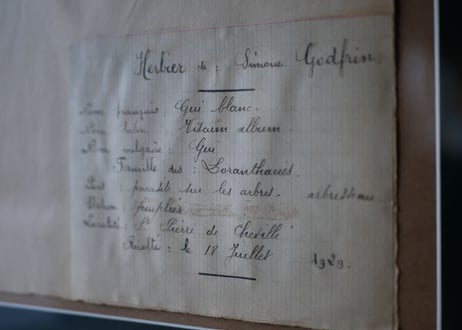 Herbier de : Simone Godfrin.
Nom français : Gui blanc.
Nom latin Viscum album.
Nom vulgaire : Gui
Famille des : Loranthacées.
Port : parasite sur les arbres. arbrisseau
Station : peuplier
Localité : St Pierre de Chevillé
Récolté : le 18 Juillet 1929.